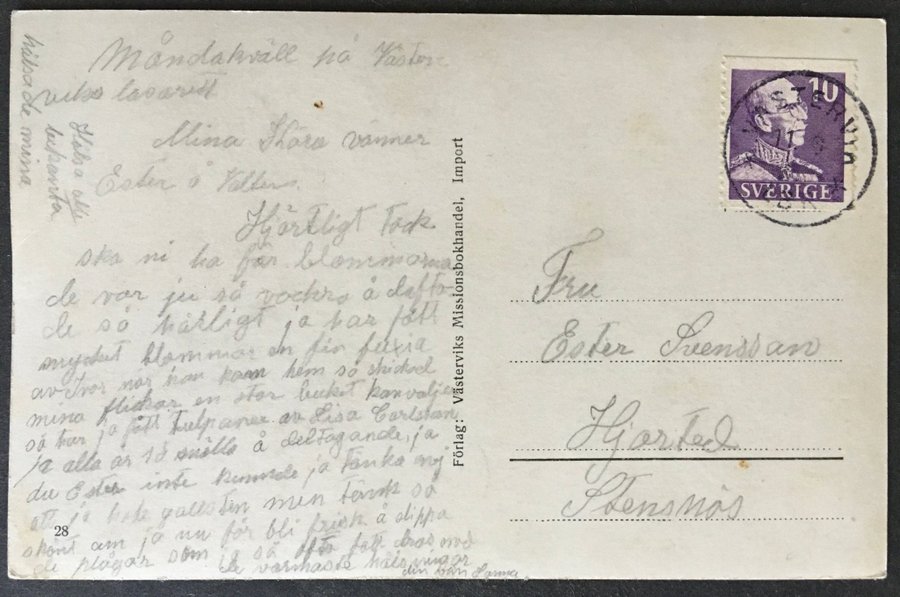 Måndakväll på Väster
viks lasarett
Mina Kära vänner
Ester å Valter.
Hjärtligt Tack
ska ni ha för blommorna
de var ju så vackra å dofta
de så härligt ja har fått
mycket blommor en fin fuxia
av Ivar när han kom hem så skickad
mina flickor en stor buket kanvaljer
så har ja fått tulpaner av Lisa Carlsson
ja alla är så snälla å deltagande, ja
du Ester inte kunnde ja tänka mej
att ja hade gallsten men tänk så
skönt om ja nu får bli frisk å slippa
de plågor som ja så ofta fått dras med
de varmaste hälsningar
din vän Hanna
Hälsa alla
bekanta
hälsade mina
28
Förlag: Västerviks Missionsbokhandel, Import
10
SVERIGE
VÄSTERVIK
11
Fru
Ester Svenssan
Hjorted
Stensnäs